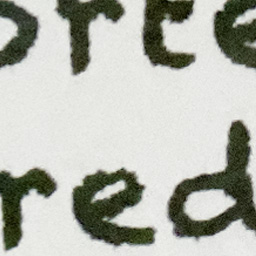 orte
red